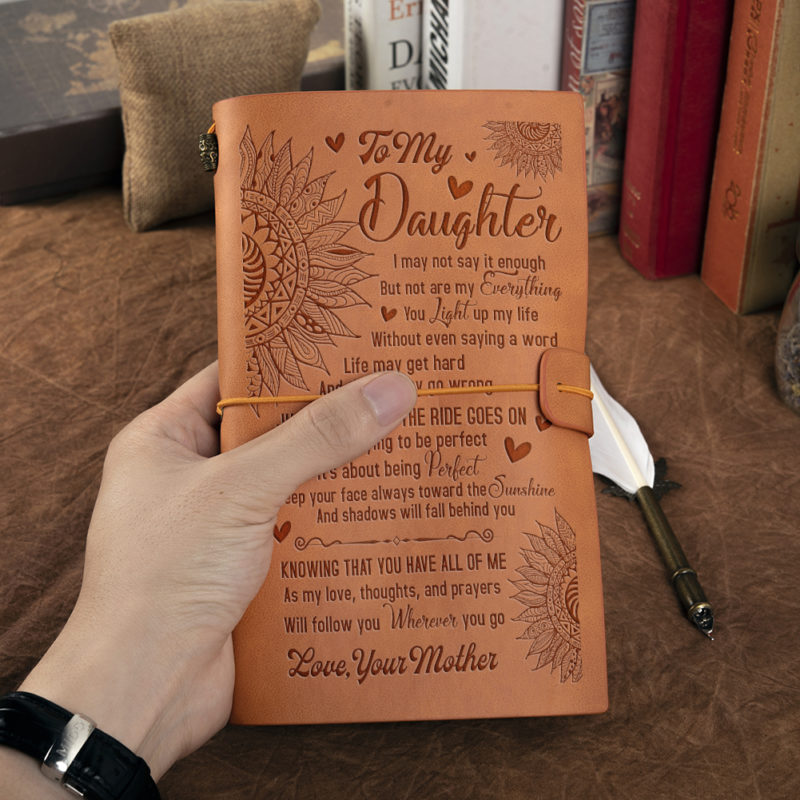 To My
Daughter
I may not say it enough
But not are my Everything
You Light up my life
Without even saying a word
Life may get hard
And go wrong
THE RIDE GOES ON
to be perfect
it's about being Perfect
your face always toward the Sunshine
And shadows will fall behind you
KNOWING THAT YOU HAVE ALL OF ME
As my love, thoughts, and prayers
Will follow you Wherever you go
Love, Your Mother